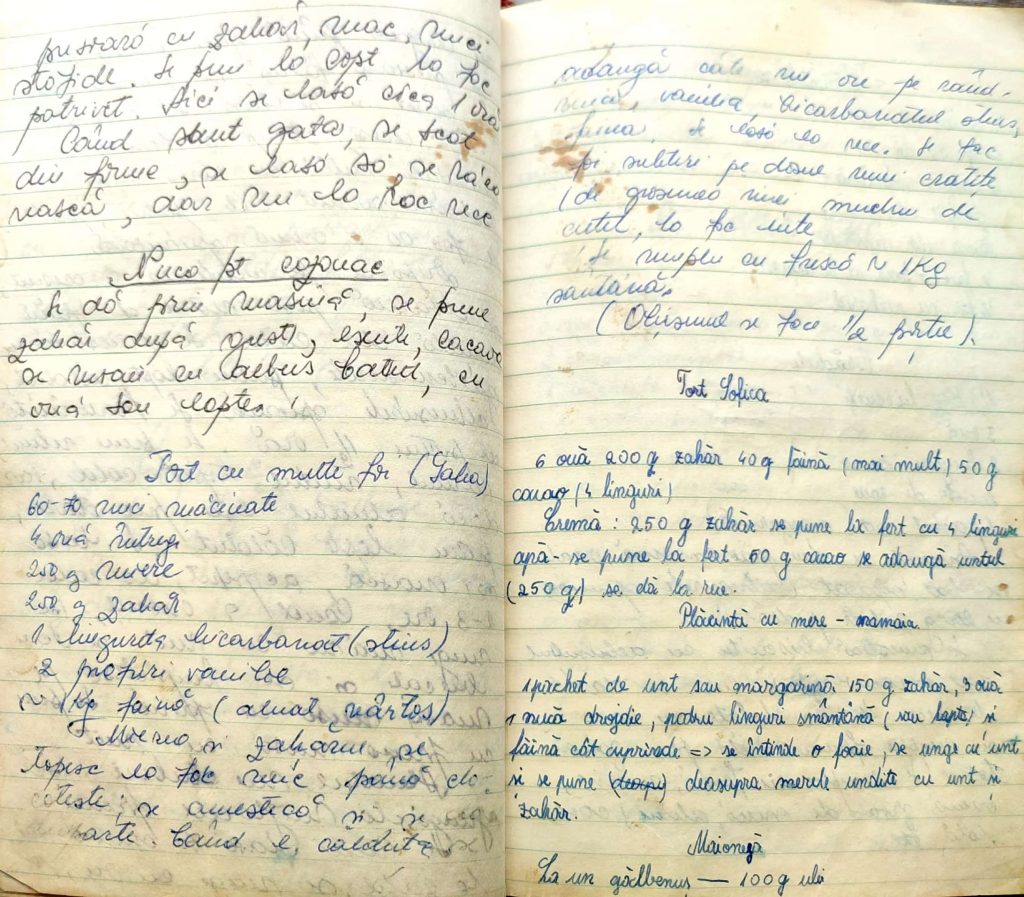 presară cu zahăr, mac, nuci
stafide. Se pun la copt la foc
potrivit. Aici se lasă circa 1 oră
Când sunt gata, se scot
din forme, se lasă să se răco
rească, dar nu la loc rece
Nuca pt cozonac
Se dă prin mașină, se pune
zahăr după gust, esență, cacao
se moaie cu albuș bătut, cu
ouă sau lapte.
Tort cu multe foi (Gaba)
60-70 nuci măcinate
4 ouă întregi
250 g miere
250 g zahăr
1 linguriță bicarbonat (stins)
2 prafuri vanilie
~ 1 Kg făină (aluat vârtos)
Mierea și zahărul se
topesc la foc mic, până clo-
cotește; se amestecă și se
bate când e călduță
adaugă câte un ou pe rând,
nuca, vanilia bicarbonatul stins,
făina. Se lasă la rece. Se fac
foi subțiri pe dosul unei cratițe
(de grosimea unei muchii de
cuțit, la foc iute
Se umplu cu frișcă ~ 1Kg
smântână.
(Obișnuit se face 1/2 porție).
Tort Sofica
6 ouă 200 g zahăr 40 g făină (mai mult) 50 g
cacao (4 linguri)
Cremă: 250 g zahăr se pune la fert cu 4 linguri
apă - se pune la fert 50 g cacao se adaugă untul
(250 g) se dă la rece.
Plăcintă cu mere - mamaia
1 pachet de unt sau margarină 150 g zahăr, 3 ouă
1 nucă drojdie, patru linguri smântână (sau lapte) si
făină cât cuprinde => se întinde o foaie, se unge cu unt
si se pune deasupra merele undite cu unt si
zahăr.
Maioneză
La un gălbenuș — 100 g ulei